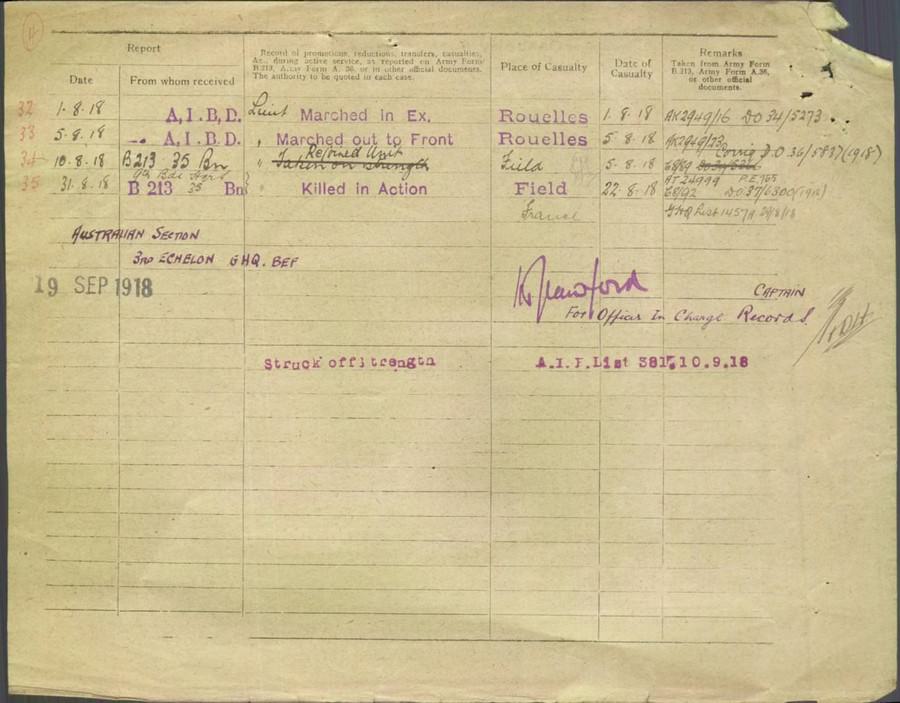 11
Report
Date
From whom received
Record of promotions, reductions, transfers, casualties,
&c., during active service, as reported on Army Form
B.213, Army Form A. 36, or in other official documents.
The authority to be quoted in each case.
Place of Casualty
Date of
Casualty
Remarks
Taken from Army Form
B.213, Army Form A.36,
or other official
documents.
32 1.8.18 A.I.B.D. Lieut Marched in Ex. Rouelles 1.8.18 AK2949/16 DO 34/5273
33 5.8.18 A.I.B.D. " Marched out to Front Rouelles 5.8.18 AK2949/23
Rejoined Unit Corrig D.O 36/5837 (1918)
34 10.8.18 B213 35 Bn " Taken on Strength Field 5.8.18
9th Bde Hqrs AT 24999 P.E 765
35 31.8.18 B 213 35 Bn " Killed in Action Field 22.8.18 D.O 37/6300
France GHQ List 1457A
Australian Section
3rd Echelon GHQ. BEF
19 SEP 1918
Captain
For Officer In Charge Records.
Struck off strength A.I.F. List 381. 10.9.18